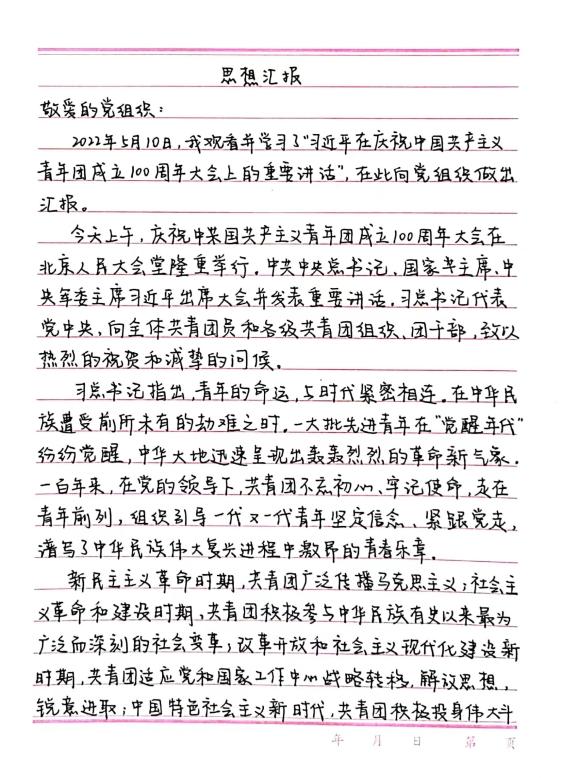 思想汇报
敬爱的党组织：
2022年5月10日，我观看并学习了"习近平在庆祝中国共产主义
青年团成立100周年大会上的重要讲话"，在此向党组织做出
汇报。
今天上午，庆祝中国共产主义青年团成立100周年大会在
北京人民大会堂隆重举行。中共中央总书记、国家主席、中
央军委主席习近平出席大会并发表重要讲话。习总书记代表
党中央，向全体共青团员和各级共青团组织、团干部，致以
热烈的祝贺和诚挚的问候。
习总书记指出，青年的命运，与时代紧密相连。在中华民
族遭受前所未有的劫难之时，一大批先进青年在"觉醒年代"
纷纷觉醒，中华大地迅速呈现出轰轰烈烈的革命新气象。
一百年来，在党的领导下，共青团不忘初心、牢记使命，走在
青年前列，组织引导一代又一代青年坚定信念、紧跟党走，
谱写了中华民族伟大复兴进程中激昂的青春乐章。
新民主主义革命时期，共青团广泛传播马克思主义；社会主
义革命和建设时期，共青团积极参与中华民族有史以来最为
广泛而深刻的社会变革；改革开放和社会主义现代化建设新
时期，共青团适应党和国家工作中心战略转移，解放思想，
锐意进取；中国特色社会主义新时代，共青团积极投身伟大斗
年 月 日 第 页